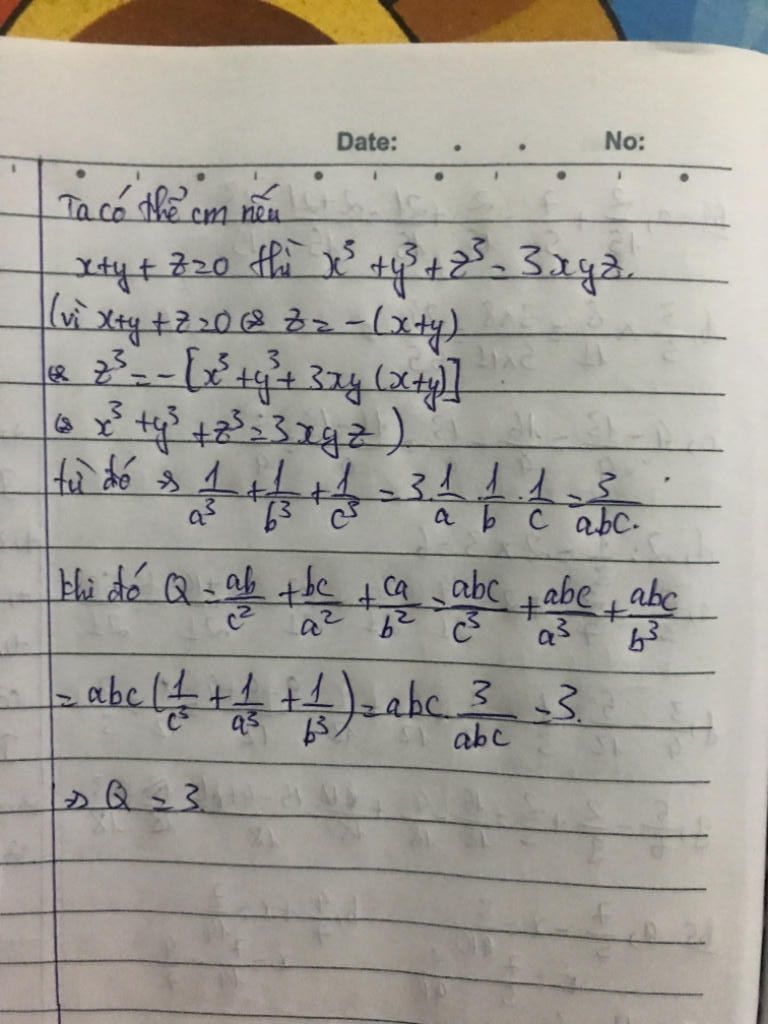 Date: . . No:
Ta có thể cm nếu
x+y+z=0 thì x³+y³+z³=3xyz.
(vì x+y+z=0 ⇔ z=-(x+y)
⇔ z³=-[x³+y³+3xy(x+y)]
⇔ x³+y³+z³=3xyz)
từ đó ⇒ 1/a³ + 1/b³ + 1/c³ = 3.1/a.1/b.1/c = 3/abc.
khi đó Q = ab/c² + bc/a² + ca/b² = abc/c³ + abc/a³ + abc/b³
= abc(1/c³ + 1/a³ + 1/b³) = abc.3/abc = 3.
⇒ Q = 3